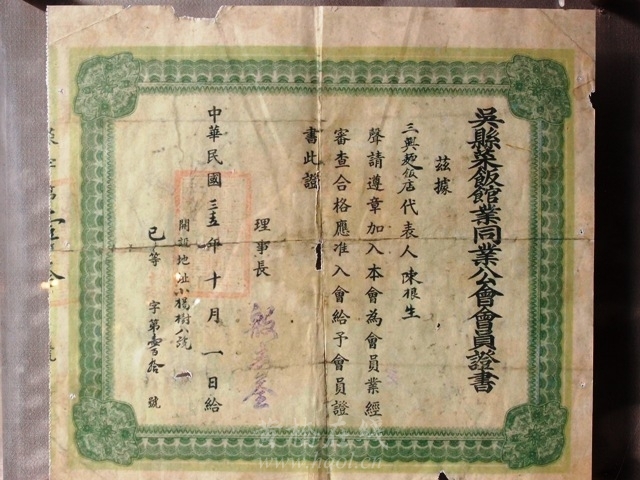 吳縣菜飯館業同業公會會員證書
茲據
三興麵飯店代表人陳根生
聲請遵章加入本會為會員業經
審查合格應准入會給予會員證
書此證
理事長
中華民國三五年十月一日給
開設地址小楊樹八號
已等字第壹百拾號
www.hqol.cn